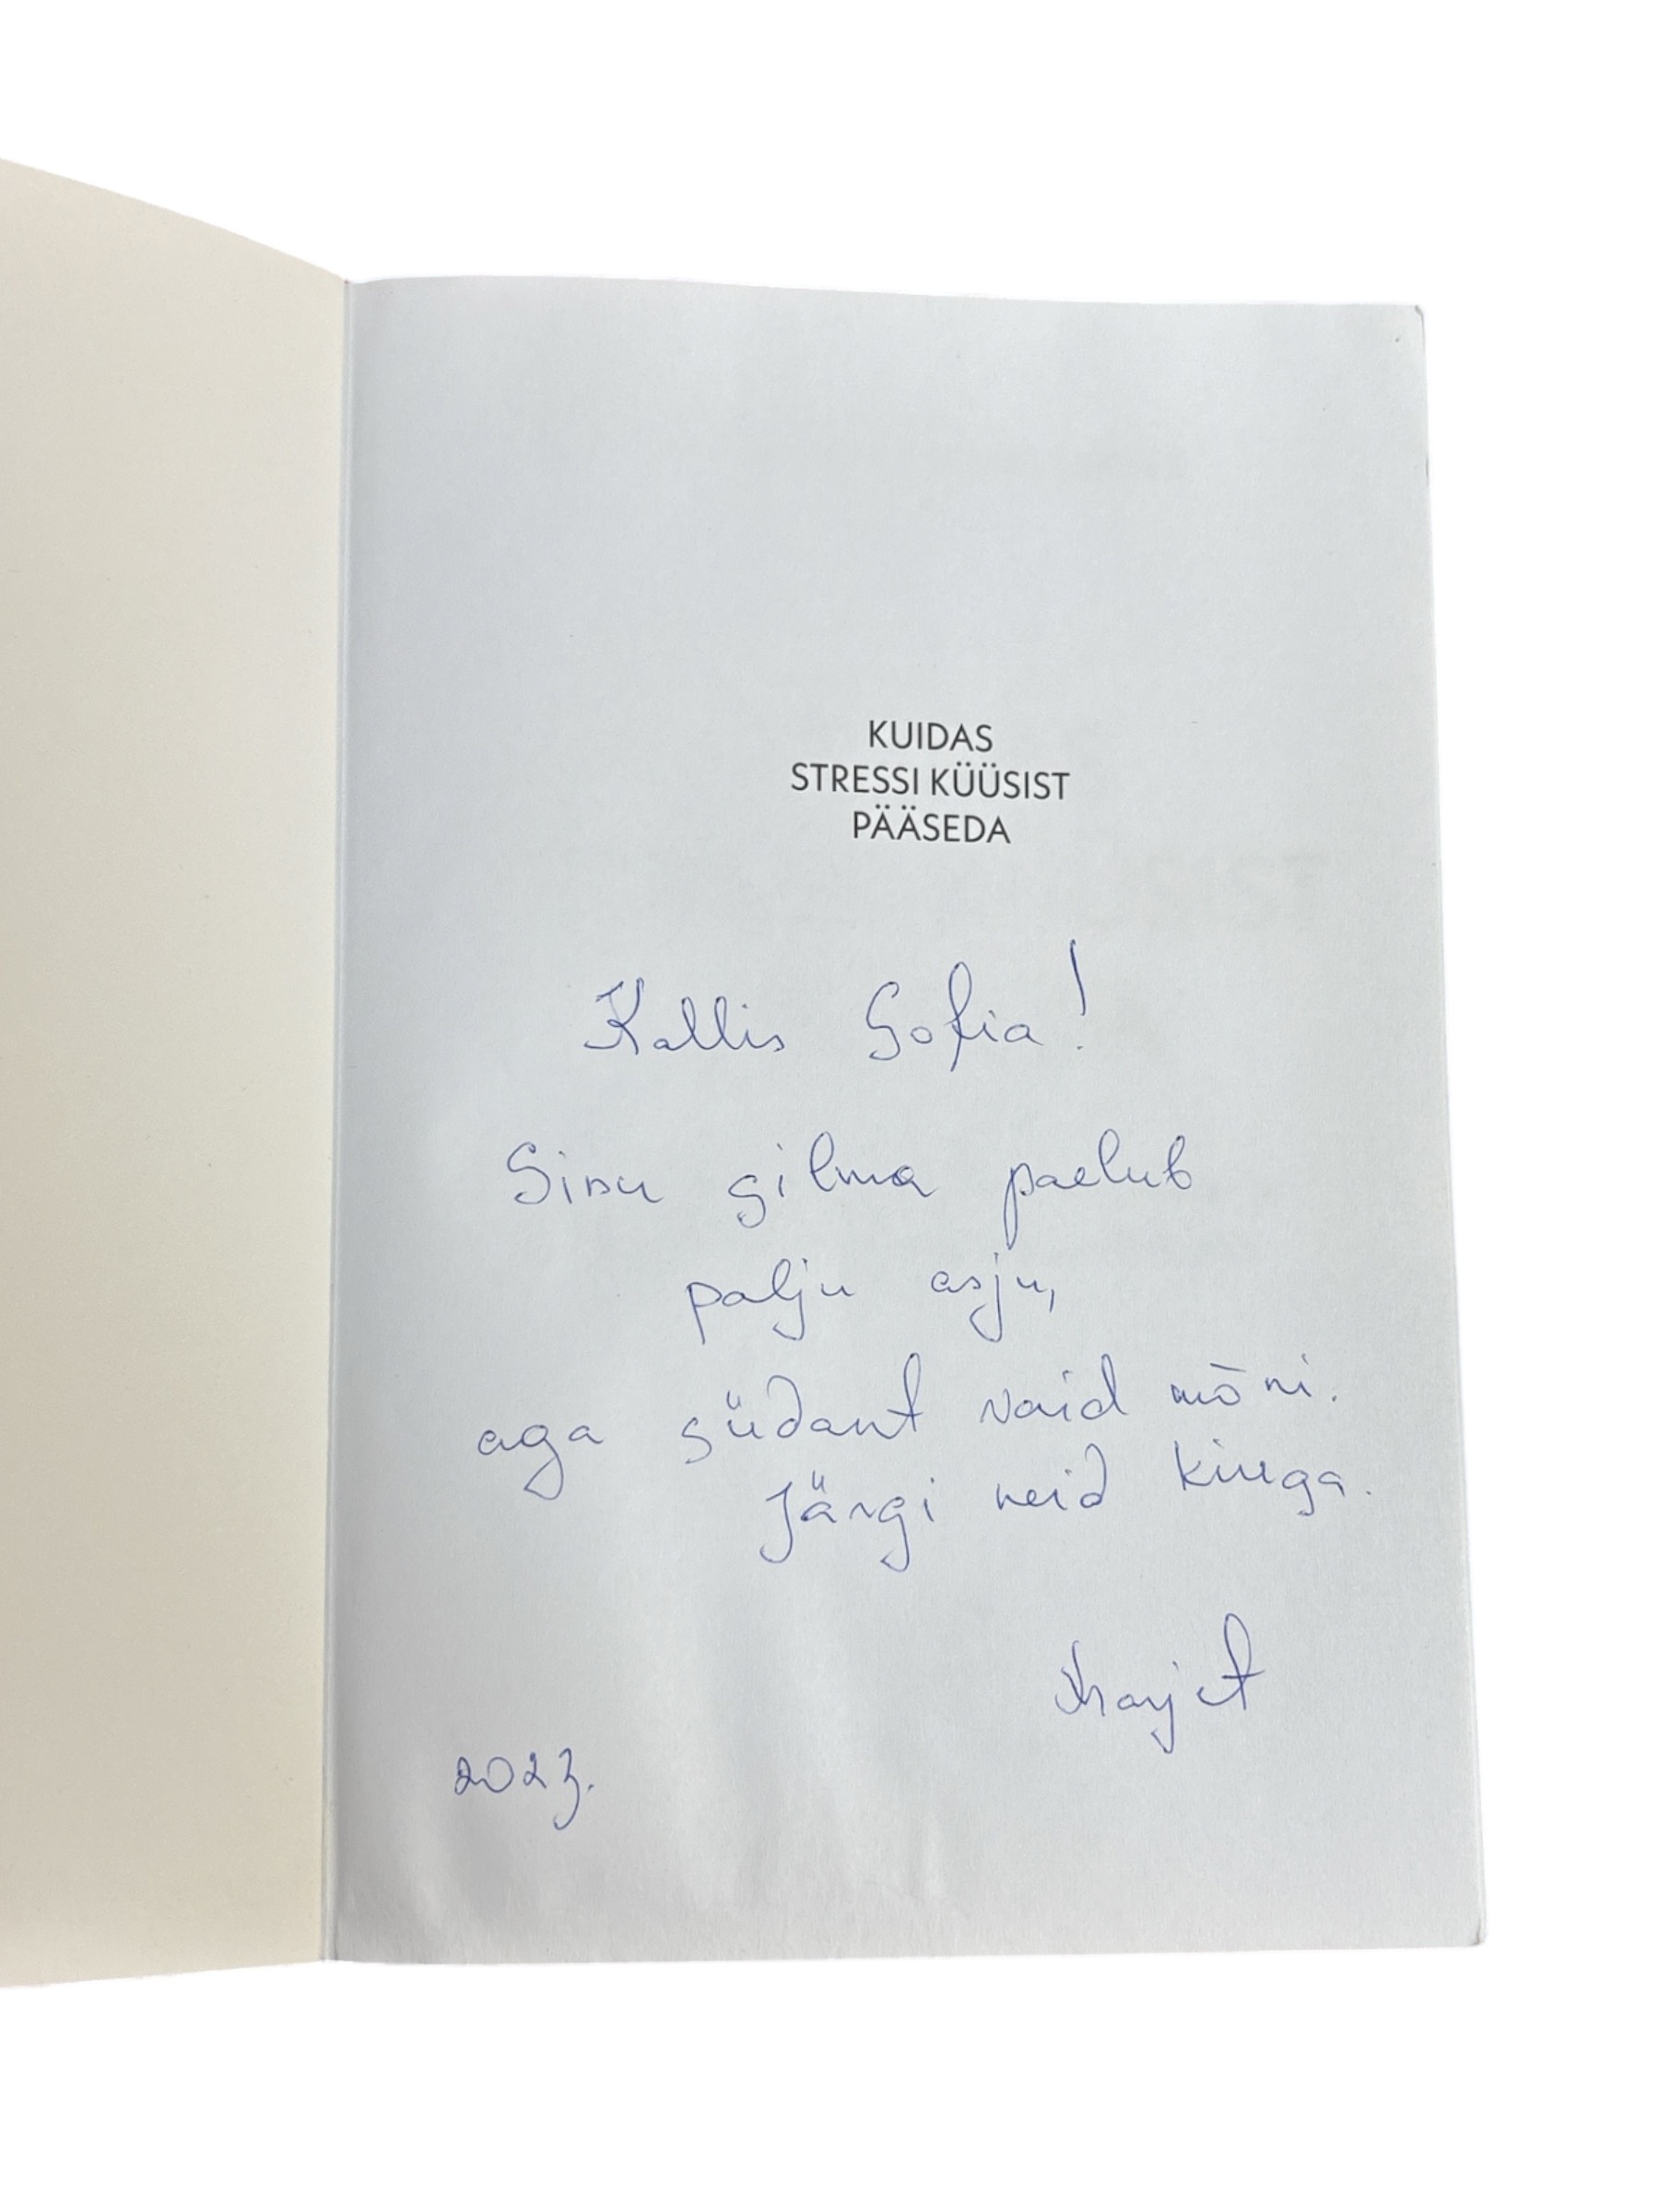 KUIDAS
STRESSI KÜÜSIST
PÄÄSEDA
Kallis Sofia!
Sinu silma paelub
palju asju,
aga südant vaid mõni.
Järgi neid kinga.
Marjet
2023.